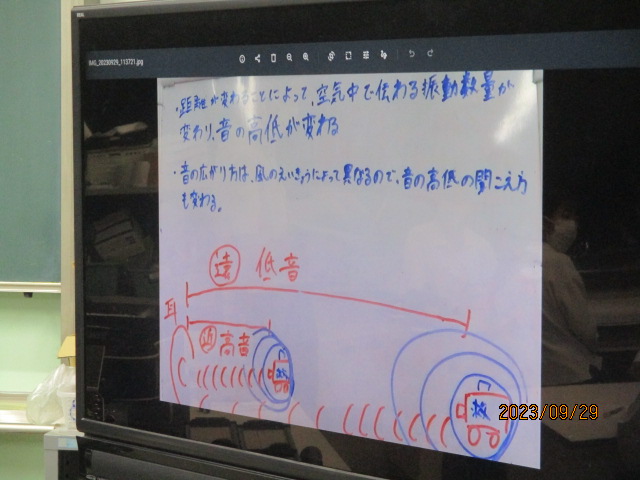 IMG_20230929_113721.jpg
・距離が変わることによって、空気中で伝わる振動数量が
変わり、音の高低が変わる
・音の広がり方は、風のえいきょうによって異なるので、音の高低の聞こえ方
も変わる。
遠 低音
耳
近 高音
救
救
2023/09/29